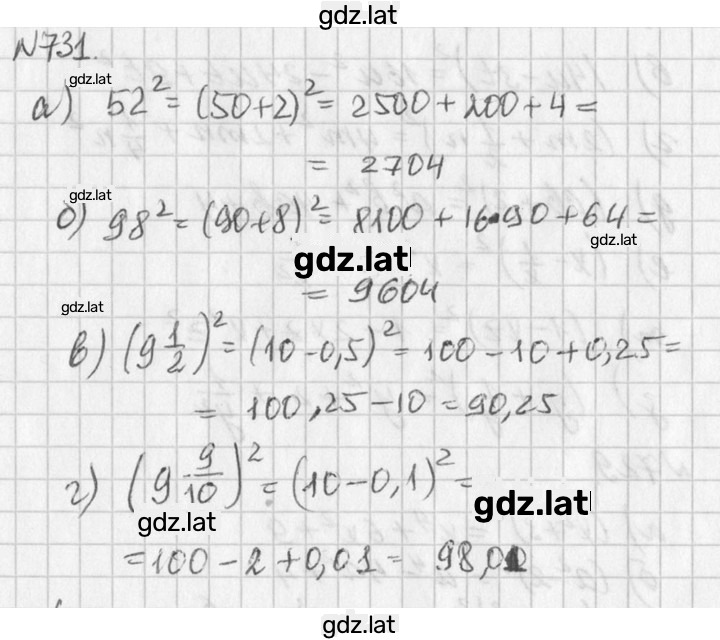 gdz.lat
N731.
gdz.lat
а) 52² = (50+2)² = 2500 + 200 + 4 =
= 2704
gdz.lat
б) 98² = (90+8)² = 8100 + 16•90 + 64 =
gdz.lat
gdz.lat
= 9604
gdz.lat
в) (9 1/2)² = (10 - 0,5)² = 100 - 10 + 0,25 =
= 100,25 - 10 = 90,25
г) (9 9/10)² = (10 - 0,1)² =
gdz.lat
gdz.lat
= 100 - 2 + 0,01 = 98,01
gdz.lat